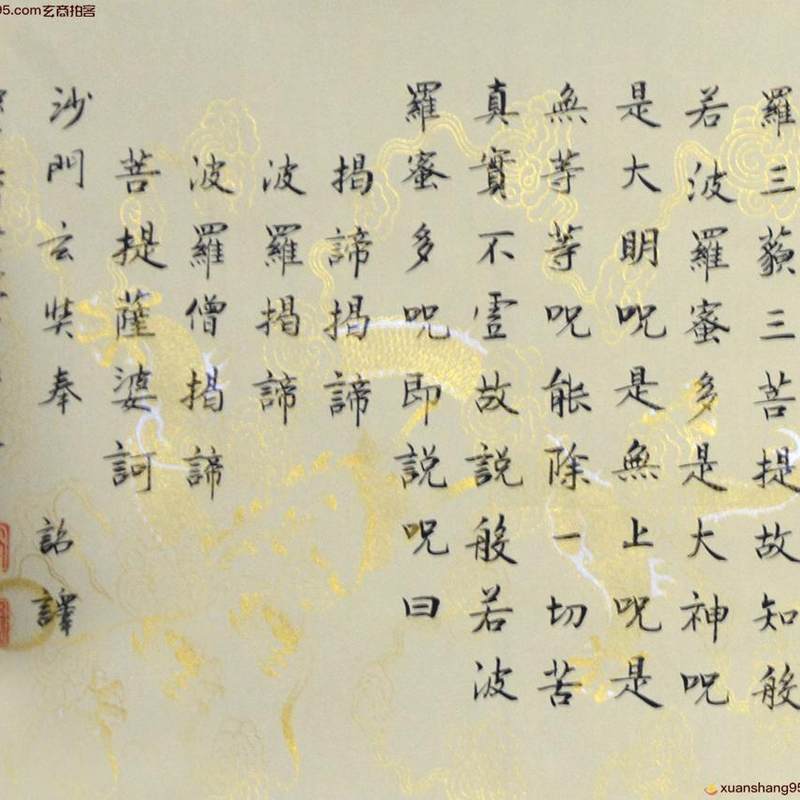 羅三藐三菩提故知般
若波羅蜜多是大神呪
是大明呪是無上呪是
無等等呪能除一切苦
真實不虛故說般若波
羅蜜多呪即說呪曰
揭諦揭諦
波羅揭諦
波羅僧揭諦
菩提薩婆訶
沙門玄奘奉 詔譯
95.com玄商拍客
xuanshang95